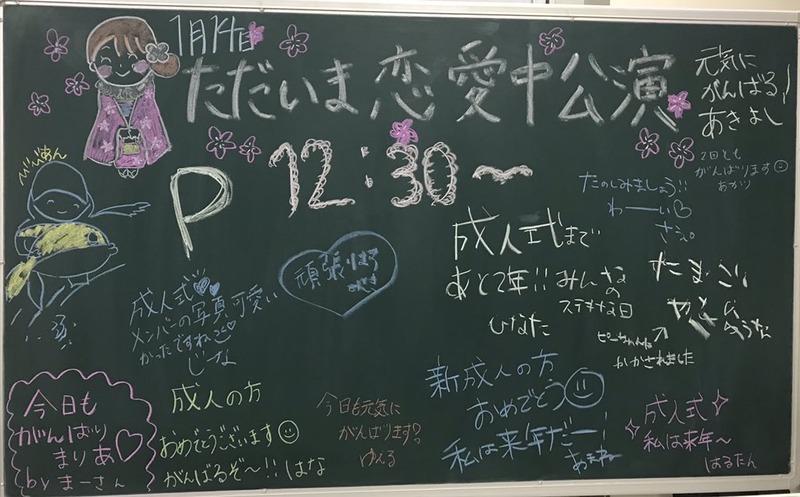 1月14日
ただいま恋愛中公演
P
12:30〜
元気に
がんばる!
あきよし
2回とも
がんばります
あかり
たのしみましょう!!
わーい♡
さえ。
成人式まで
あと2年!! みんな
の
ステキな日
ひなた
頑張ろう
成人式
メンバーの写真可愛い
かったですね
じーな
今日も
がんばり
まりあ♡
by まーさん
成人の方
おめでとうございます
がんばるぞ〜!! はな
今日も元気に
がんばります
新成人の方
おめでとう
私は来年だー!
成人式
私は来年〜
はるたん
かかされました